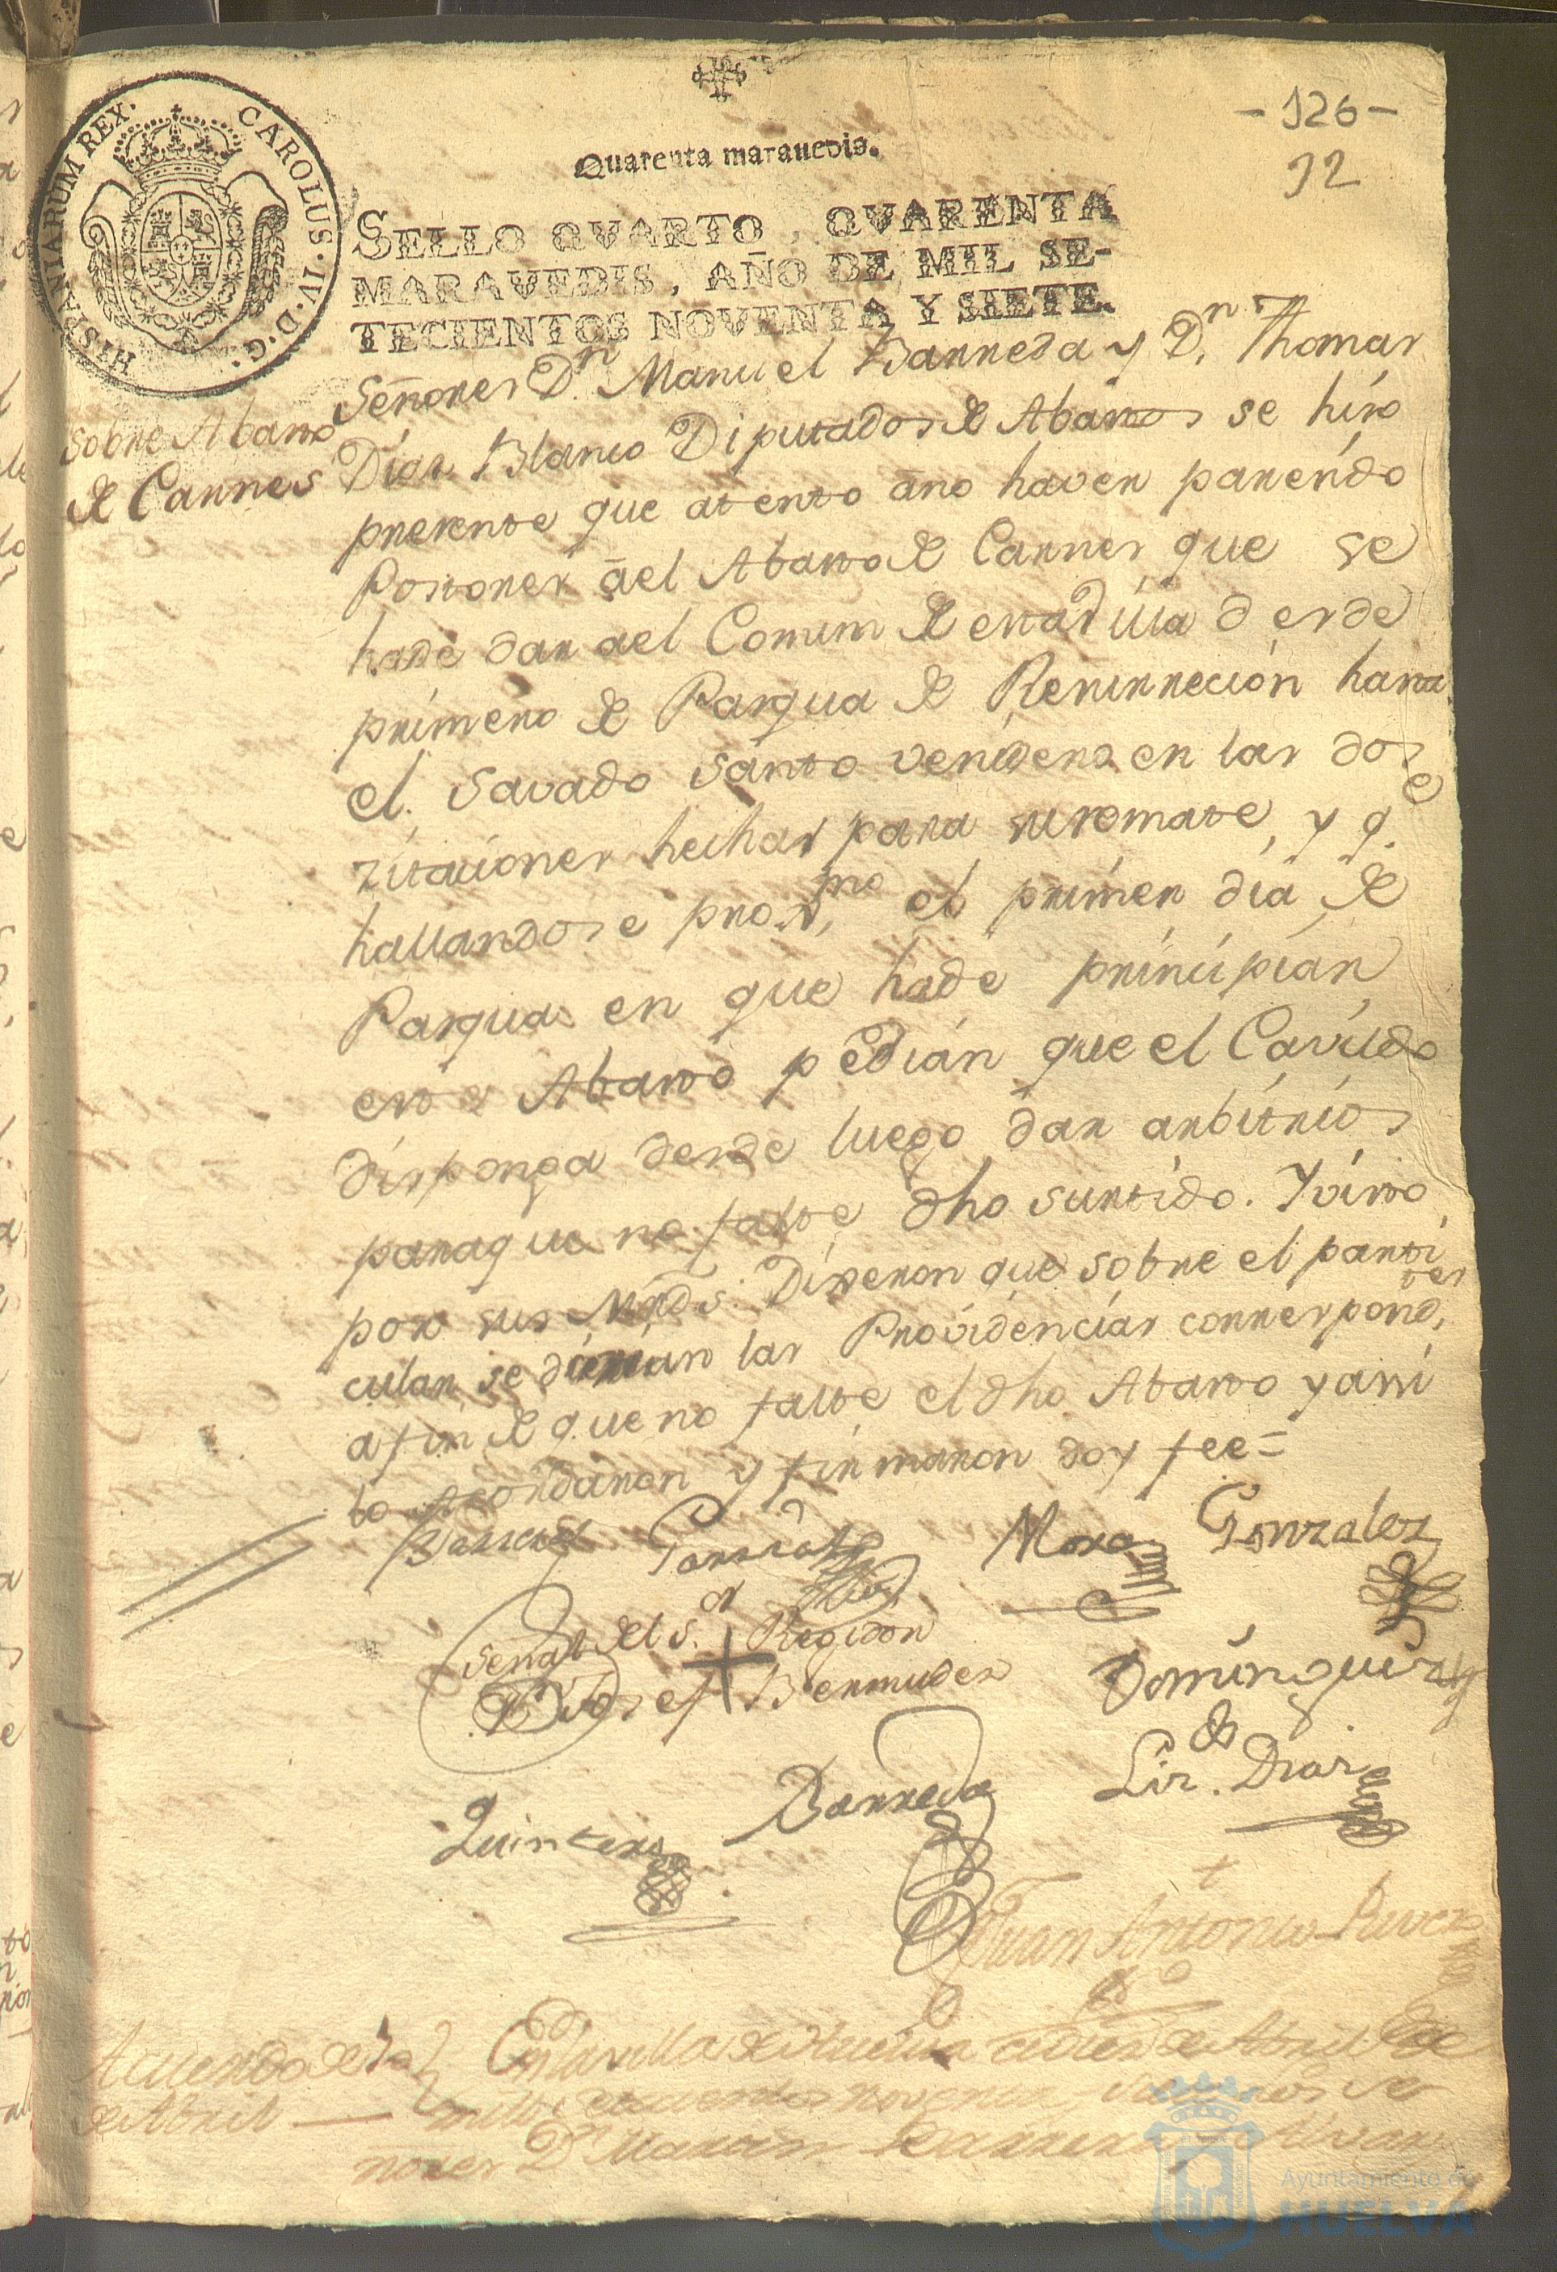 - 126 -
92
Quarenta marauedis.
HISPANIARUM REX. CAROLUS · IV · D · G ·
SELLO QVARTO, QVARENTA
MARAVEDIS, AÑO DE MIL SE-
TECIENTOS NOVENTA Y SIETE.
Sobre Abasto
de Carnes
Señores Dn. Manuel Barreda y Dn. Thomas
Dias Blanco Diputados de Abastos se hiso
presente que atento ano haver parecido
Postores ael Abasto de Carnes que se
hade dar ael Comun de esta Villa desde
primero de Pasqua de Resurrección hasta
el Savado Santo venidero en las dos
zitaciones hechas para su remate, y qe.
hallandose proxmo, el primer dia de
Pasqua en que hade principiar
este Abasto pedian que el Cavildo
disponga desde luego dar arbitrios
paraque no falte dho surtido. Y visto
por sus Mrds. Dixeron que sobre el parti
cular se las Providencias correspond,tes
a fin de que no falte el dho Abasto y assi
lo acordaron y firmaron doy fee =
Mora Gonzalez
Señal del Sor Regidor
Dn Josef + Bermudez
Dominguez
Quintero Barreda Liz. Dias
Juan Antonio
Acuerdo de 10
de Abril —
En la villa de Huelva a diez de Abril de
mill setecientos noventa y siete los se
ñores Dn
Ayuntamiento de
HUELVA